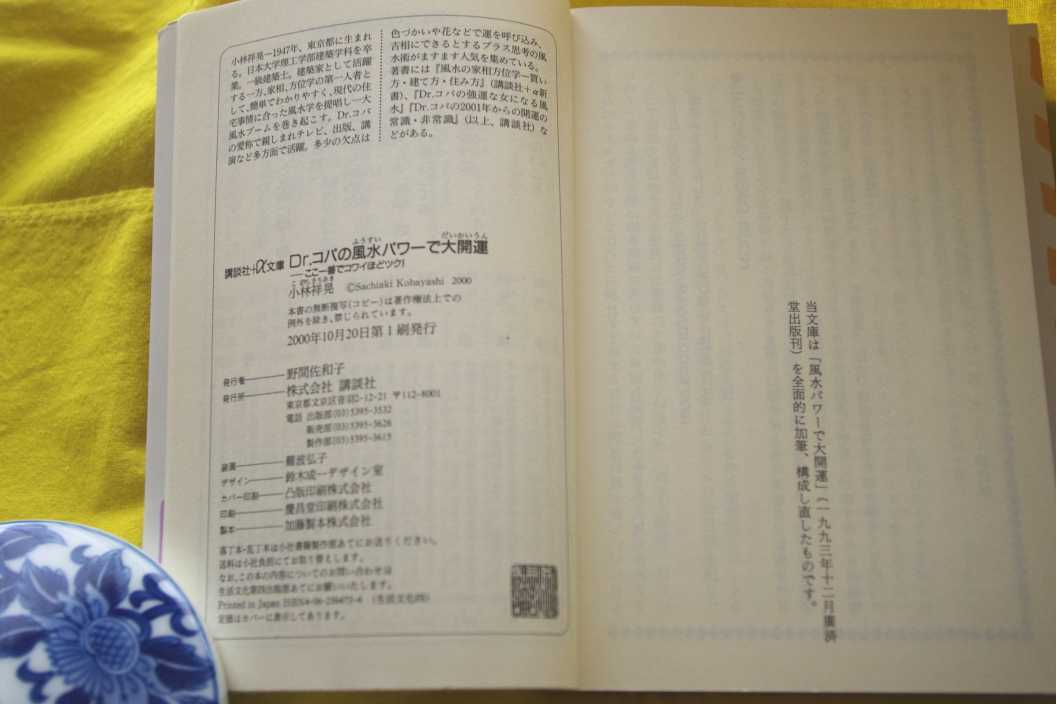 小林祥晃―1947年、東京都に生まれ
る。日本大学理工学部建築学科を卒
業。一級建築士。建築家として活躍
する一方、家相、方位学の第一人者と
して、簡単でわかりやすく、現代の住
宅事情に合った風水学を提唱し一大
風水ブームを巻き起こす。Dr.コパ
の愛称で親しまれテレビ、出版、講
演など多方面で活躍。多少の欠点は
色づかいや花などで運を呼び込み、
吉相にできるとするプラス思考の風
水術がますます人気を集めている。
著書には『風水の家相方位学―買い
方・建て方・住み方』(講談社+α新
書)、『Dr.コパの強運な女になる風
水』『Dr.コパの2001年からの開運の
常識・非常識』(以上、講談社)な
どがある。
講談社+α文庫 Dr.コパの風水パワーで大開運
ふうすい だいかいうん
――ここ一番でコワイほどツク!
こばやしさちあき
小林祥晃 ©Sachiaki Kobayashi 2000
本書の無断複写(コピー)は著作権法上での
例外を除き、禁じられています。
2000年10月20日第1刷発行
発行者――野間佐和子
発行所――株式会社 講談社
東京都文京区音羽2-12-21 〒112-8001
電話 出版部(03)5395-3532
販売部(03)5395-3626
製作部(03)5395-3615
装画――難波弘子
デザイン――鈴木成一デザイン室
カバー印刷――凸版印刷株式会社
印刷――慶昌堂印刷株式会社
製本――加藤製本株式会社
落丁本・乱丁本は小社書籍製作部あてにお送りください。
送料は小社負担にてお取り替えします。
なお、この本の内容についてのお問い合わせは
生活文化第四出版部あてにお願いいたします。
Printed in Japan (生活文化四)
定価はカバーに表示してあります。
当文庫は『風水パワーで大開運』(一九九三年十二月廣済
堂出版刊)を全面的に加筆、構成し直したものです。